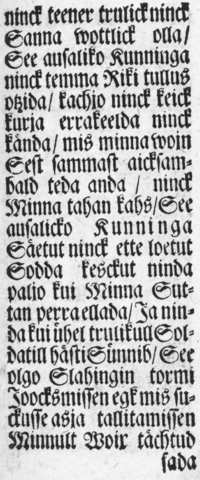 ninck teener trulick ninck
Sanna wottlick olla/
See ausaliko Kunninga
ninck temma Riki tullus
otzida/ kachjo ninck keick
kurja errakeelda ninck
kända/ mis minna woin
Sest sammast aicksam-
bald teda anda / ninck
Minna tahan kahs/See
ausalicko Kunninga
Säetut ninck ette loetut
Sodda kesckut ninda
paljo kui Minna Sut-
tan perra ellada/ Ja nin-
da kui ühel trulikull Sol-
datill hästi Sünnib/ See
olgo Slahingin tormi
Joocksmissen egk mis su-
ckusse asja tallitamissen
Minnult Woix tächtud
sada